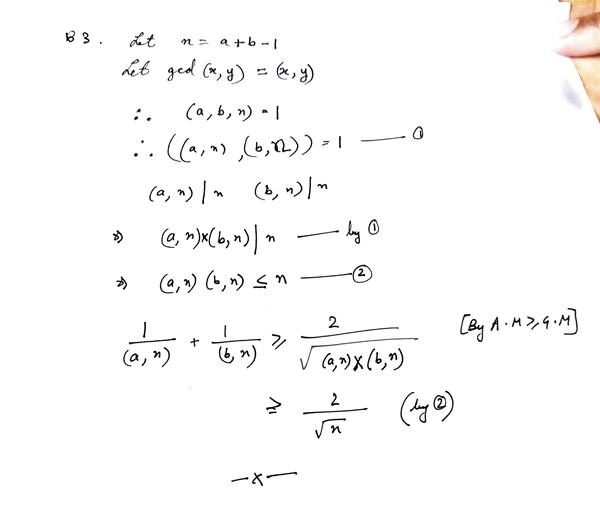 B 3. Let n = a+b-1
Let gcd (x, y) = (x, y)
∴ (a, b, n) = 1
∴ ((a, n), (b, n)) = 1 —— ①
(a, n) | n (b, n) | n
⇒ (a, n)×(b, n) | n —— by ①
⇒ (a, n) (b, n) ≤ n —— ②
1/(a, n) + 1/(b, n) ≥ 2/√((a, n)×(b, n)) [By A.M ≥ G.M]
≥ 2/√n (by ②)
—x—